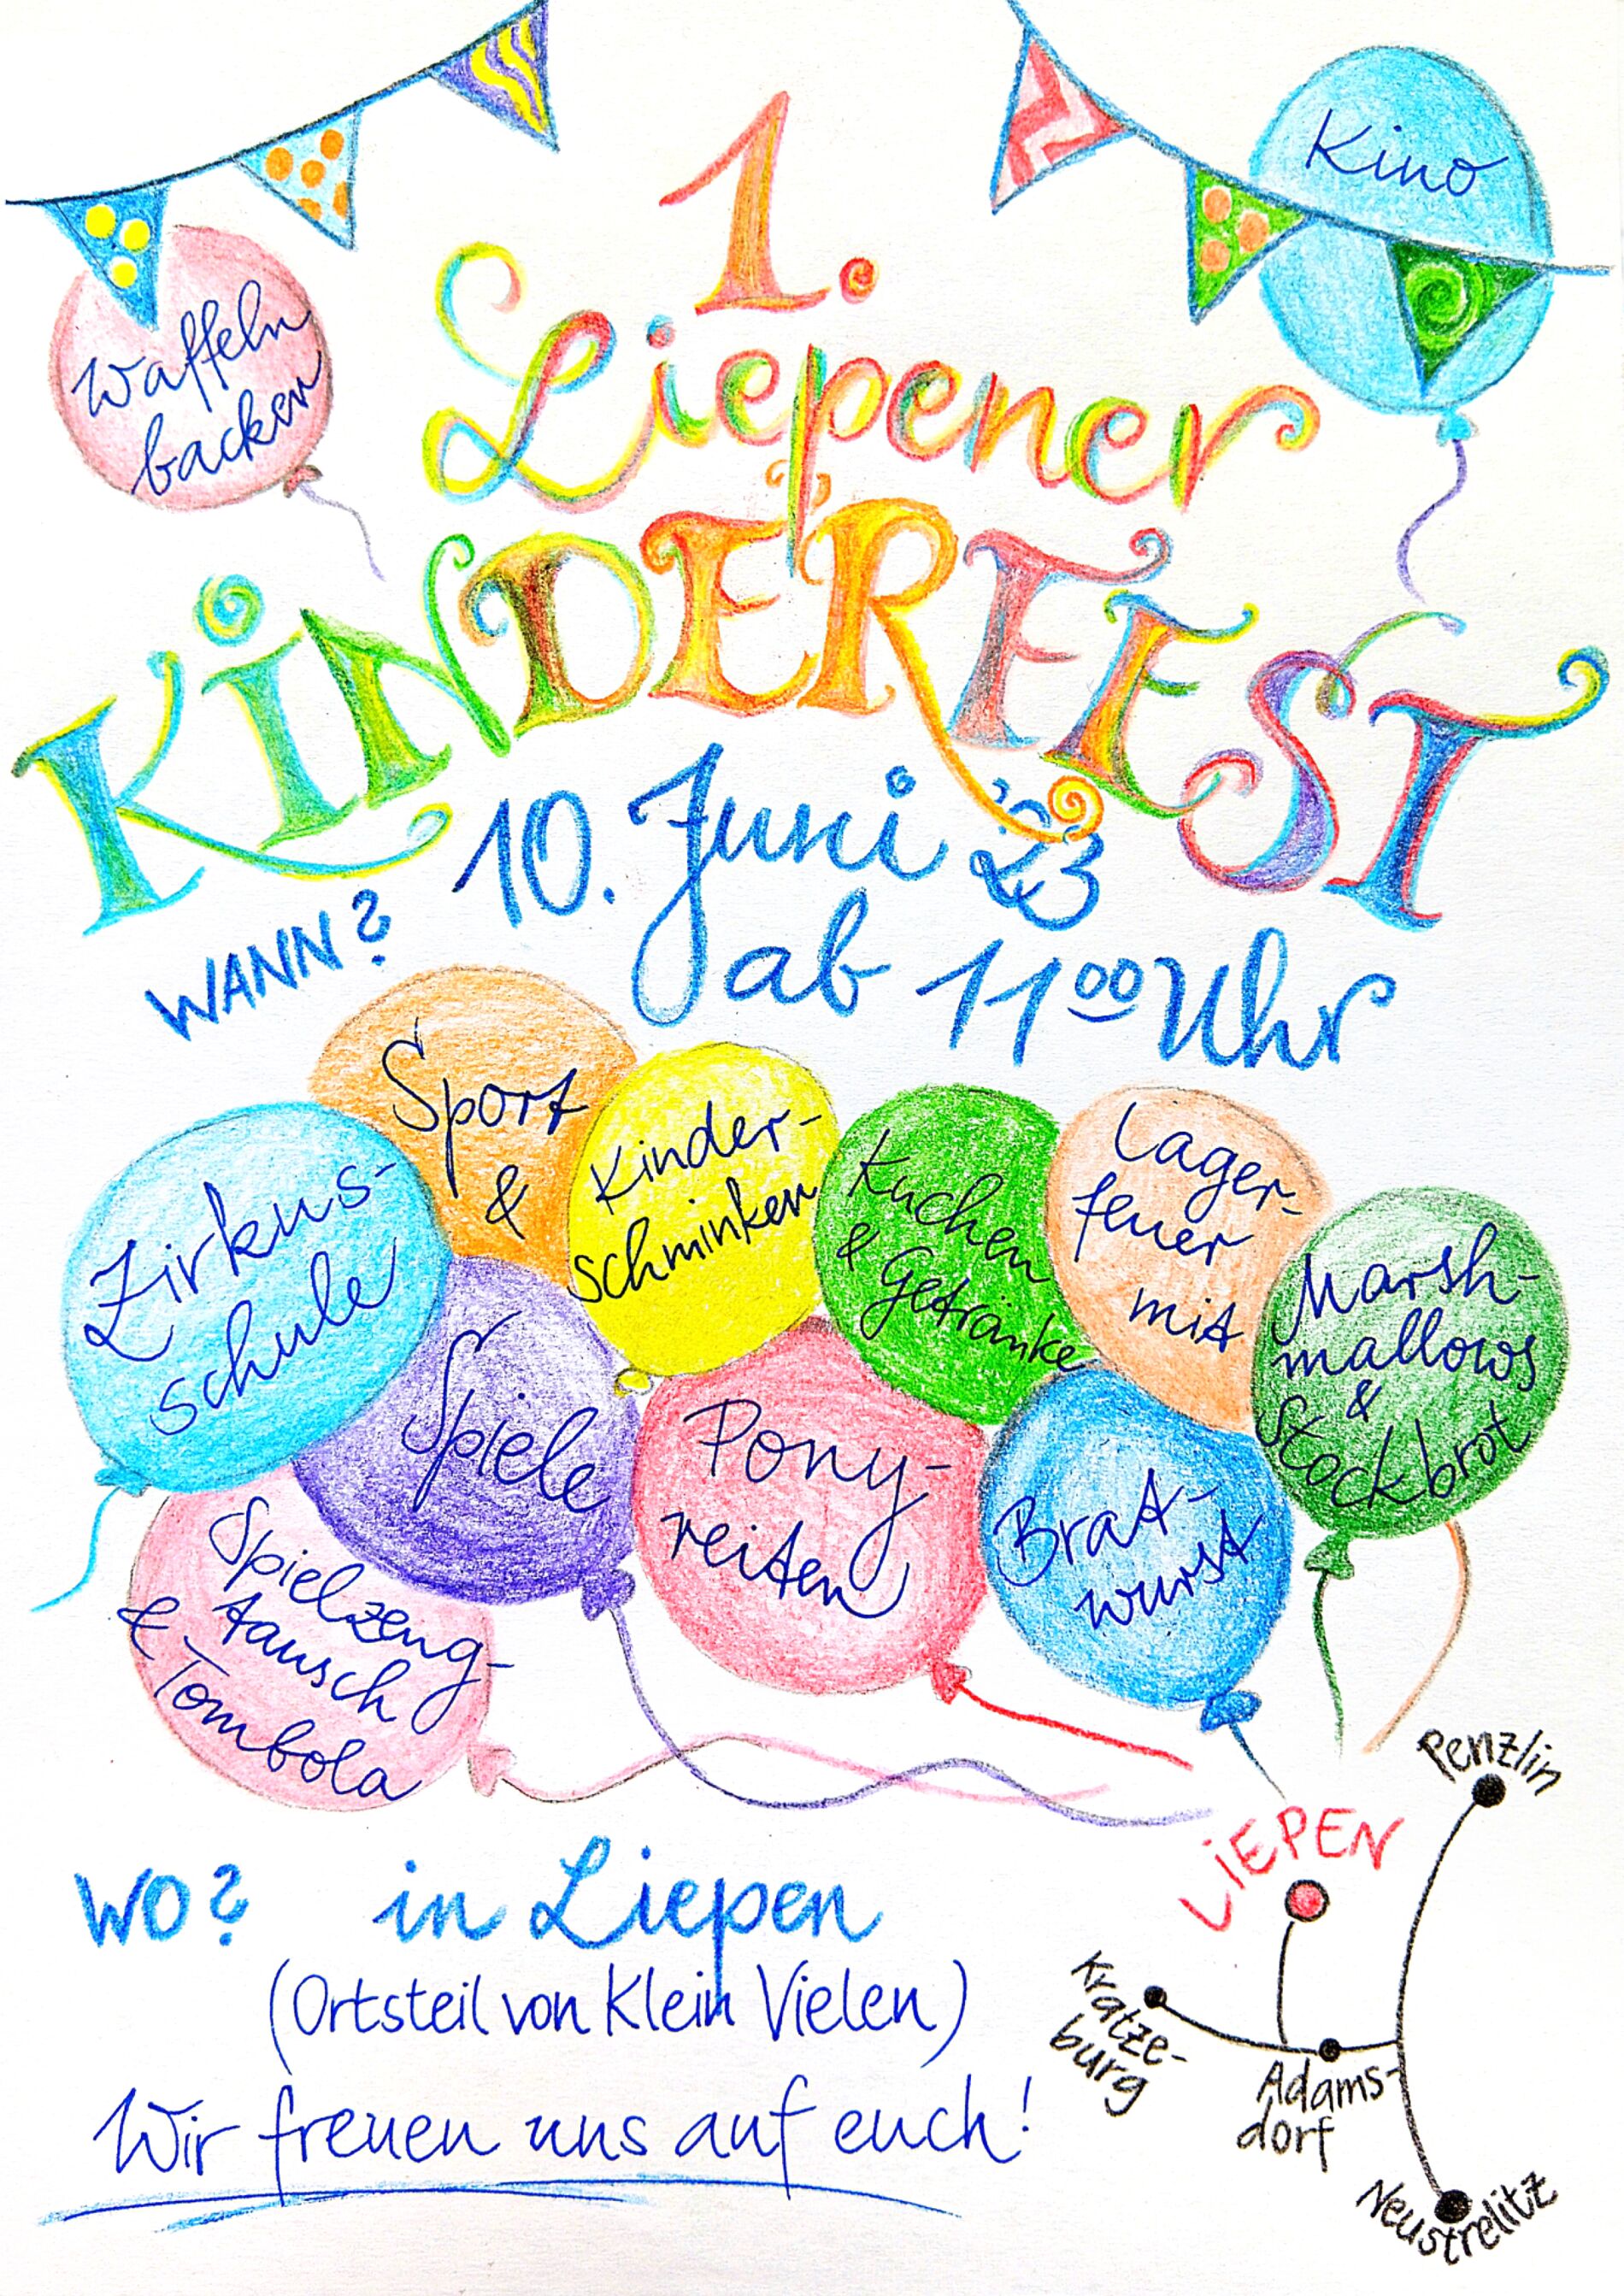 1.
Liepener
KiNDERFEST
Waffeln
backen
Kino
WANN? 10. Juni '23
ab 11 00 Uhr
Zirkus-
schule
Sport
&
Spiele
Kinder-
schminken
Kuchen
& Getränke
Lager-
feuer
mit
Marsh-
mallows
&
Stockbrot
Spielzeug-
tausch
& Tombola
Pony-
reiten
Brat-
wurst
WO? in Liepen
(Ortsteil von Klein Vielen)
Wir freuen uns auf euch!
Penzlin
LiEPEN
Kratze-
burg
Adams-
dorf
Neustrelitz